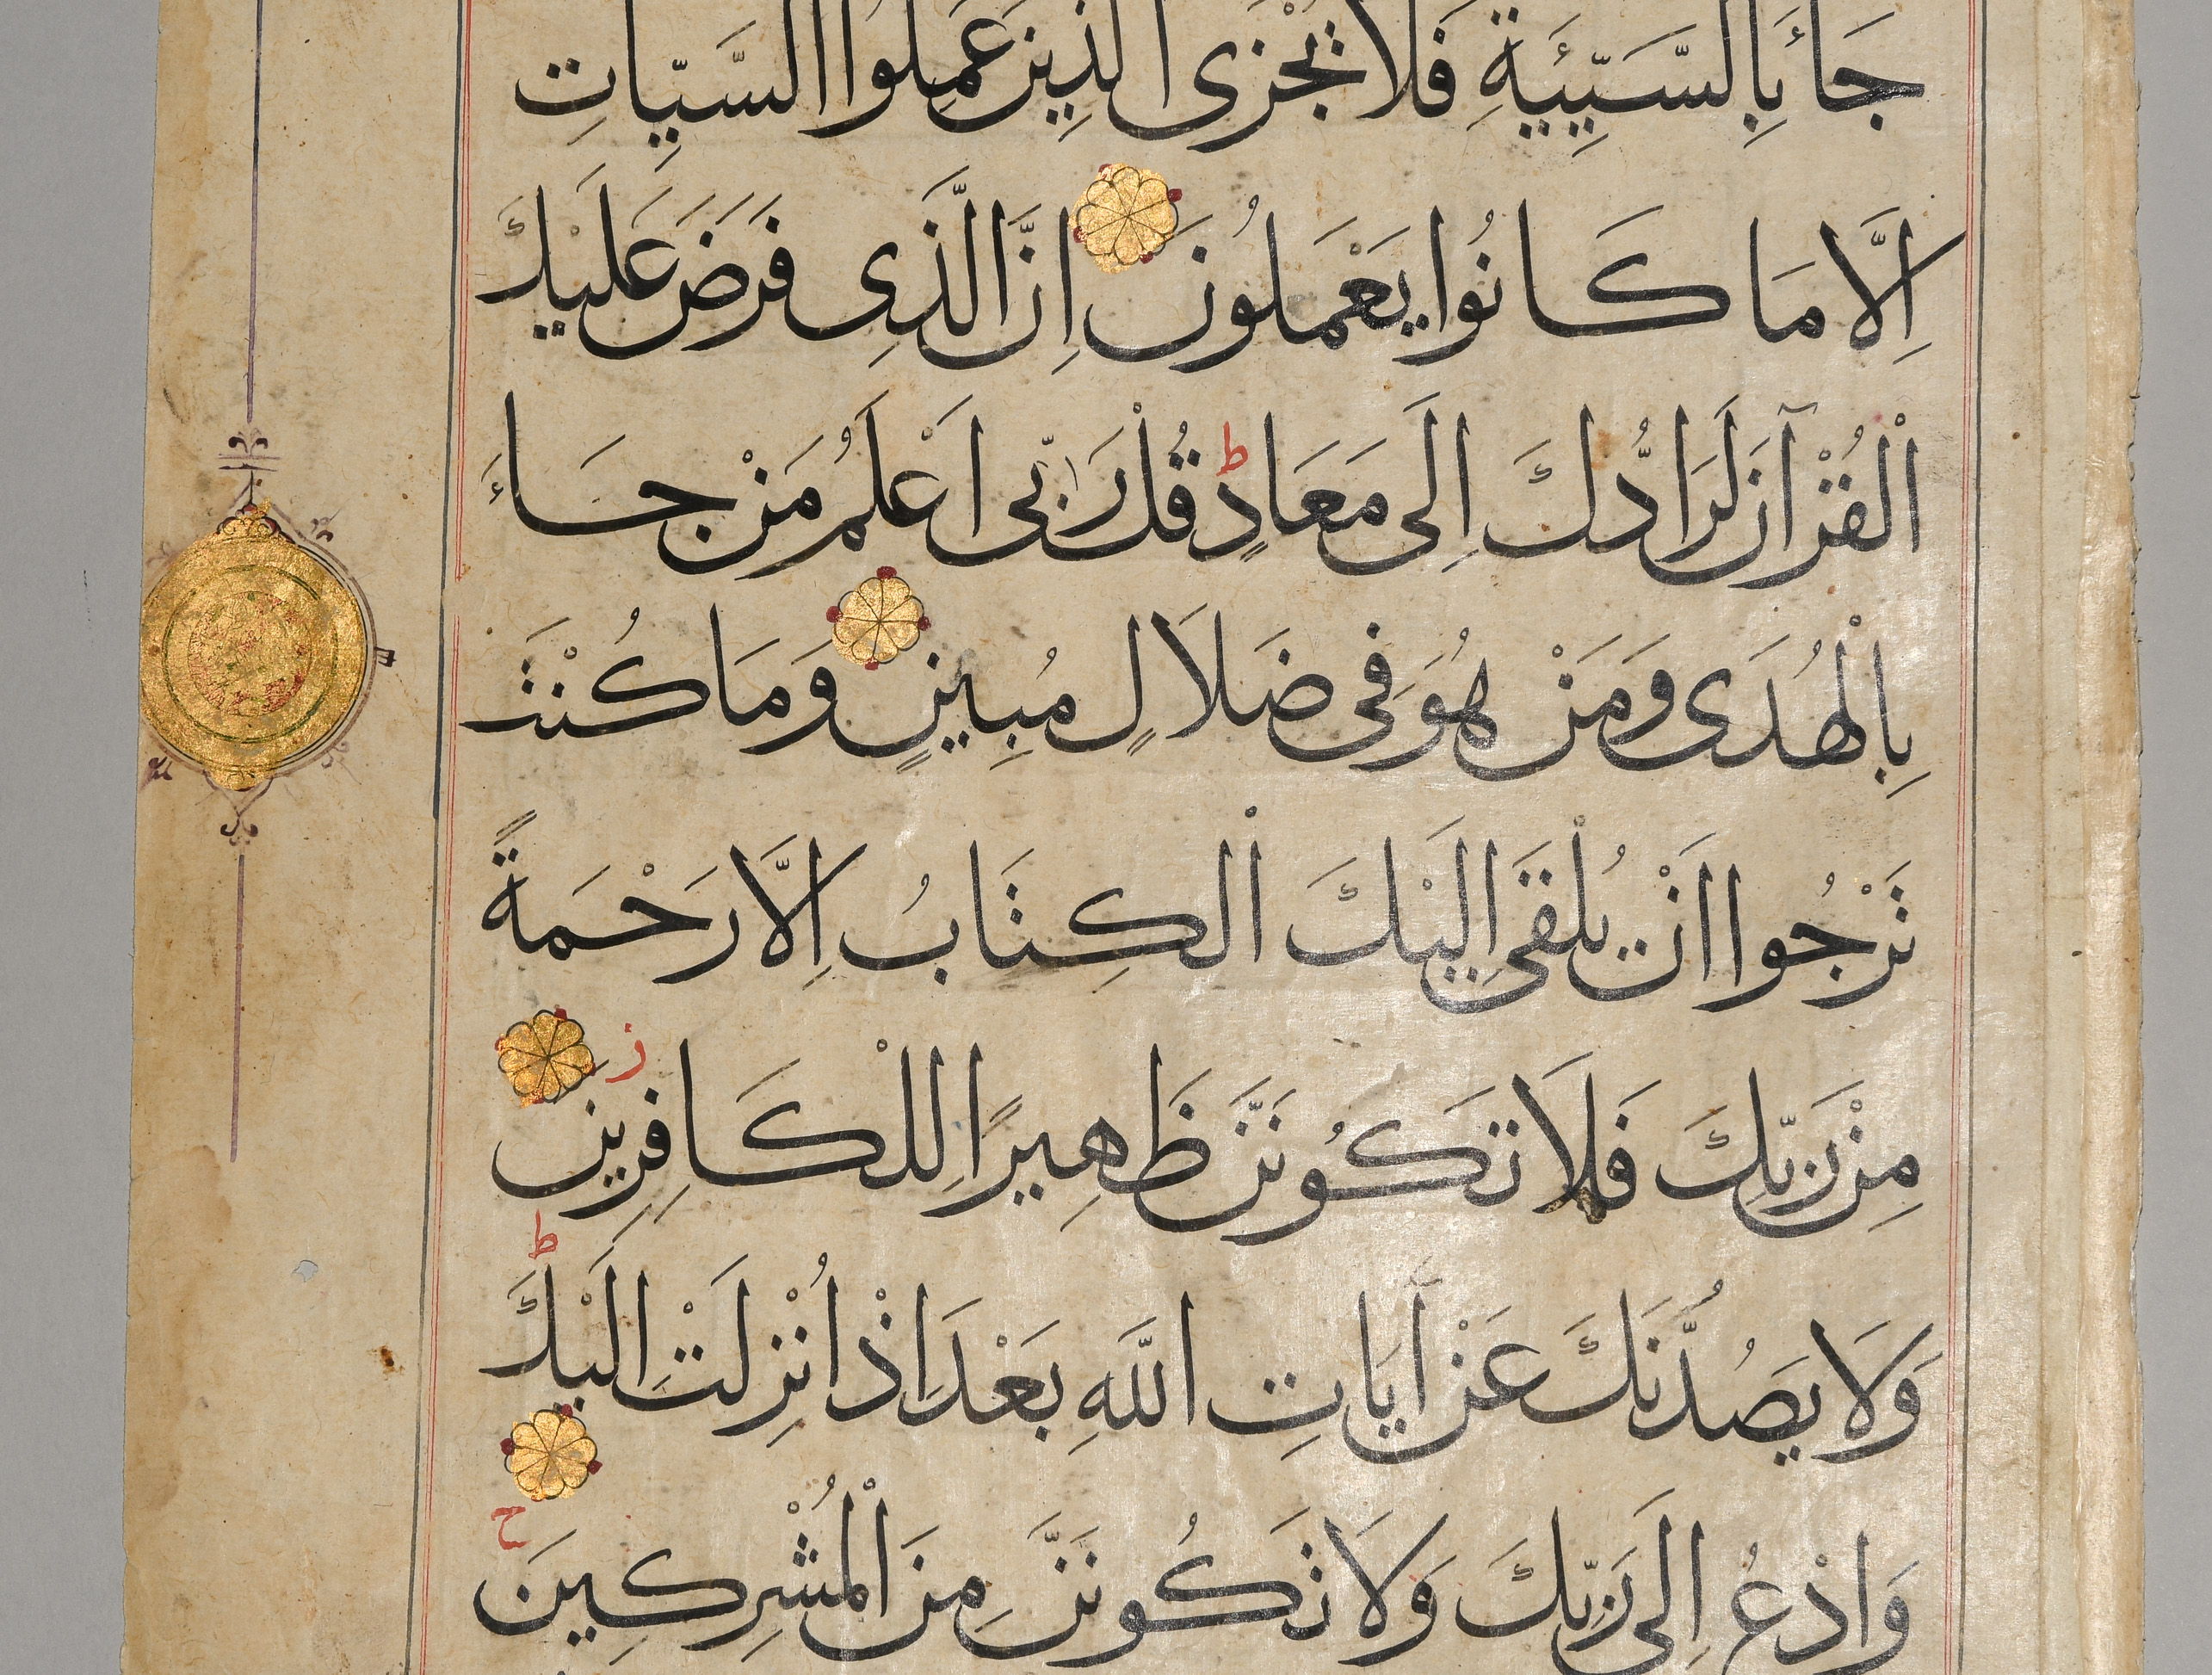 جَاءَ بِالسَّيِّئَةِ فَلَا يُجْزَى الَّذِينَ عَمِلُوا السَّيِّاتِ
اِلَّا مَا كَانُوا يَعْمَلُونَ اِنَّ الَّذِى فَرَضَ عَلَيْكَ
الْقُرْآنَ لَرَادُّكَ اِلَى مَعَادٍ ط قُلْ رَبِّى اَعْلَمُ مَنْ جَاءَ
بِالْهُدَى وَمَنْ هُوَ فِى ضَلَالٍ مُبِينٍ وَمَا كُنْتَ
تَرْجُوا اَنْ يُلْقَى اِلَيْكَ الْكِتَابُ اِلَّا رَحْمَةً
مِنْ رَبِّكَ فَلَا تَكُونَنَّ ظَهِيرًا لِلْكَافِرِينَ ز
وَلَا يَصُدُّنَّكَ عَنْ آيَاتِ اللَّهِ بَعْدَ اِذْ اُنْزِلَتْ اِلَيْكَ ط
وَادْعُ اِلَى رَبِّكَ وَلَا تَكُونَنَّ مِنَ الْمُشْرِكِينَ ح